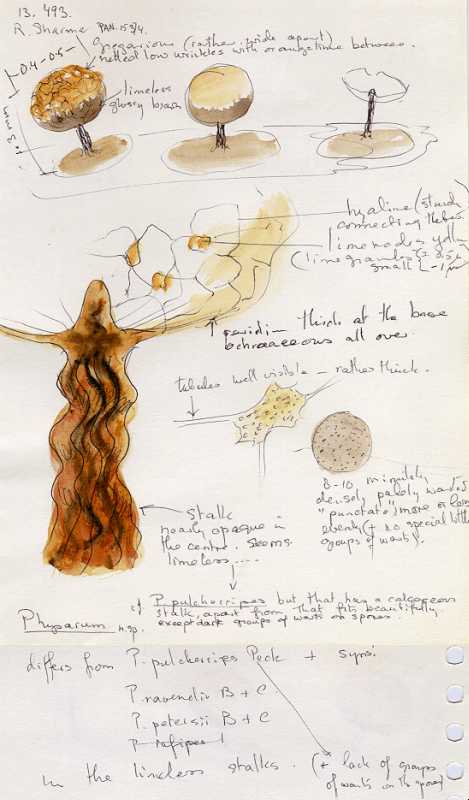 13. 493.
R. Sharma PAN. 153/4.
Gregarious (rather wide apart)
0.4-0.5
netted low wrinkles with orange lime between.
limeless
glossy brown
hyaline (sturdy
connecting tubes
lime nodes yellow
(lime granules
small
peridium thick at the base
ochraceous all over.
tubules well visible - rather thick.
8-10, minutely
densely palely warted
"punctate", more or less
evenly (+ no special little
groups of warts).
stalk
nearly opaque in
the centre. Seems
limeless ....
cf P. pulcherripes but that has a calcareous
stalk, apart from that fits beautifully
except dark groups of warts on spores.
Physarum n.sp.
differs from P. pulcherripes Peck + syns:
P. ravenelii B + C
P. petersii B + C
P. rufipes
In the limeless stalks. (+ lack of groups
of warts on the spores)